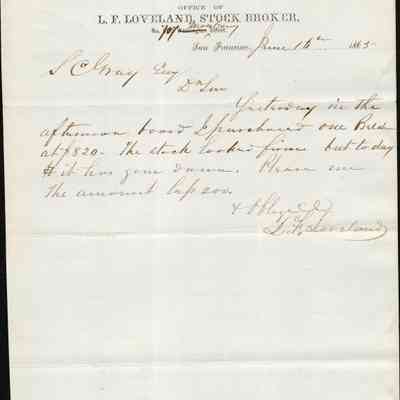 OFFICE OF
L. F. LOVELAND, STOCK BROKER,
No. 707 Montgomery Street.
San Francisco, June 16th 1865
S C Gray Esq
Dr Sir
Yesterday in the
afternoon board I purchased one Belc
at $820. The stock looked firm but to day
it has gone down. Please
the amount
& Oblige
L. F. Loveland